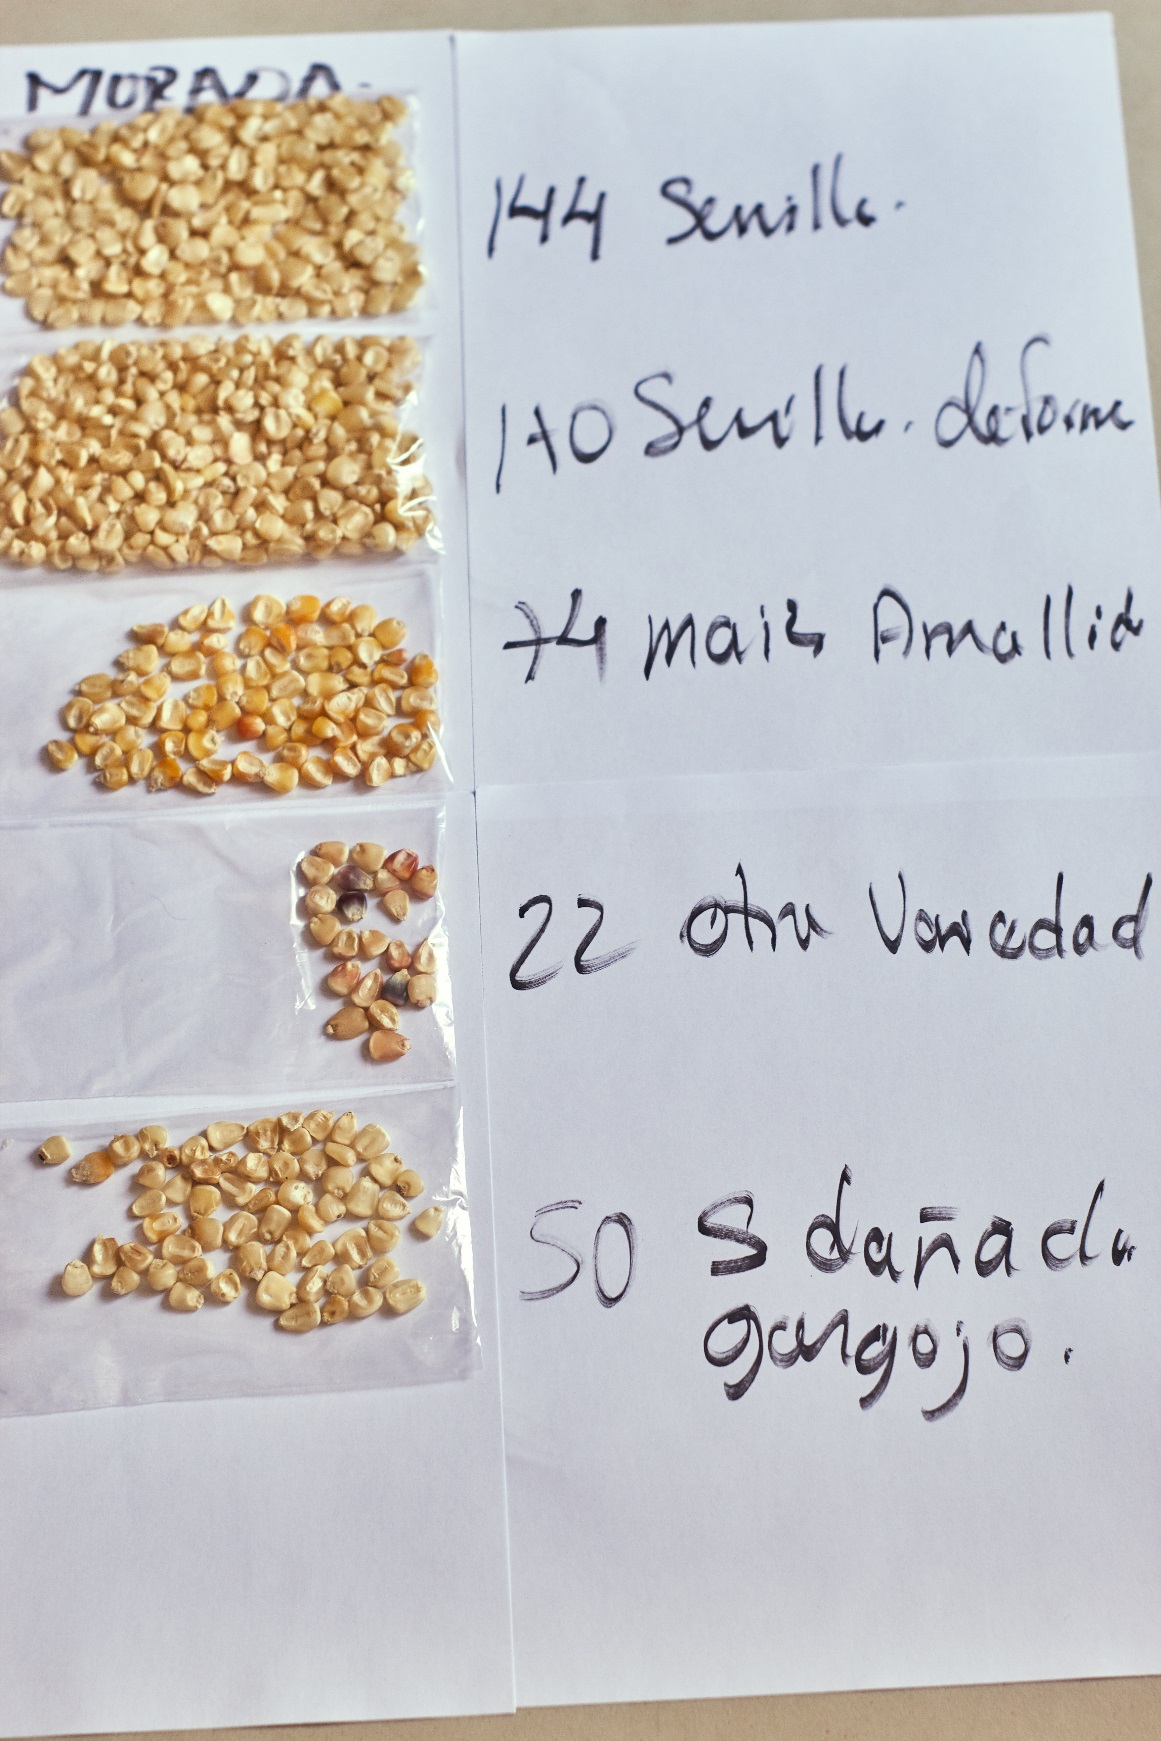 MORADA.
144 Semilla.
170 Semilla. deforme
74 maiz Amallid
22 otra Variedad
50 S dañada
gorgojo.